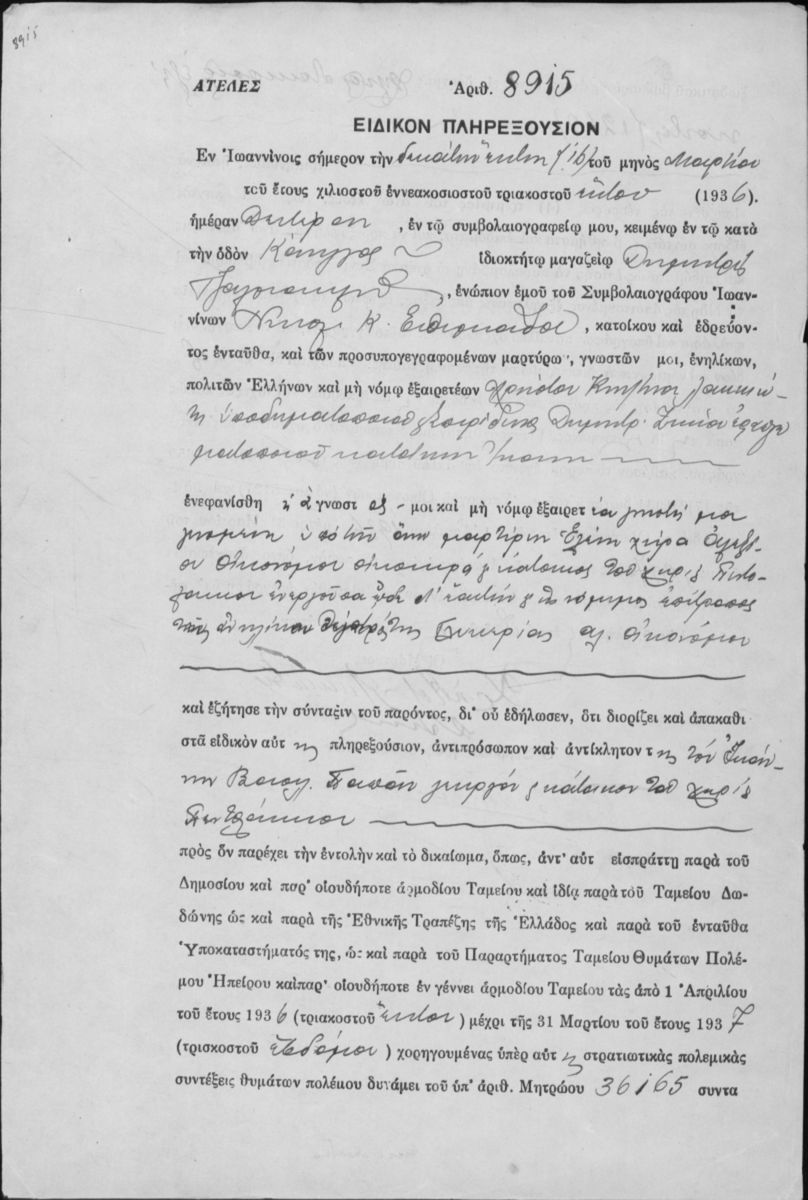 8915
ΑΤΕΛΕΣ Ἀριθ. 8915
ΕΙΔΙΚΟΝ ΠΛΗΡΕΞΟΥΣΙΟΝ
Εν Ἰωαννίνοις σήμερον τὴν δεκάτην ἕκτην (16) τοῦ μηνὸς Μαρτίου
τοῦ ἔτους χιλιοστοῦ ἐννεακοσιοστοῦ τριακοστοῦ ἕκτου (1936).
ἡμέραν Δευτέραν , ἐν τῷ συμβολαιογραφείῳ μου, κειμένῳ ἐν τῷ κατὰ
τὴν ὁδὸν Κάνιγγος ἰδιοκτήτῳ μαγαζείῳ Δημητρίου
, ἐνώπιον ἐμοῦ τοῦ Συμβολαιογράφου Ἰωαν-
νίνων Νικολ. Κ. , κατοίκου καὶ ἑδρεύον-
τος ἐνταῦθα, καὶ τῶν προσυπογεγραφομένων μαρτύρων, γνωστῶν μοι, ἐνηλίκων,
πολιτῶν Ἑλλήνων καὶ μὴ νόμῳ ἐξαιρετέων Χρήστου
ὑποδηματοποιοῦ Δημητρ.
κατοίκων
ἐνεφανίσθη ἡ ἄγνωστος μοι καὶ μὴ νόμῳ ἐξαιρετέα γνωστή μοι
γενομένη ὑπὸ τῶν ἄνω μαρτύρων Ἑλένη χήρα Ἀλεξ.
Οἰκονόμου οἰκοκυρά κάτοικος τοῦ χωρίου
ἐνεργοῦσα δι' ἑαυτήν ὡς νόμιμος ἐπίτροπος
τῆς ἀνηλίκου θυγατρός της Ἀλ. Οἰκονόμου
καὶ ἐζήτησε τὴν σύνταξιν τοῦ παρόντος, δι' οὗ ἐδήλωσεν, ὅτι διορίζει καὶ ἀποκαθι
στᾶ εἰδικὸν αὐτ ης πληρεξούσιον, ἀντιπρόσωπον καὶ ἀντίκλητον της τὸν Ἰωάν-
νην Βασιλ. Παππᾶν γεωργόν κάτοικον τοῦ χωρίου
πρὸς ὃν παρέχει τὴν ἐντολὴν καὶ τὸ δικαίωμα, ὅπως, ἀντ' αὐτ εἰσπράττῃ παρὰ τοῦ
Δημοσίου καὶ παρ' οἱουδήποτε ἁρμοδίου Ταμείου καὶ ἰδίᾳ παρὰ τοῦ Ταμείου Δω-
δώνης ὡς καὶ παρὰ τῆς Ἐθνικῆς Τραπέζης τῆς Ἑλλάδος καὶ παρὰ τοῦ ἐνταῦθα
Ὑποκαταστήματός της, ὡς καὶ παρὰ τοῦ Παραρτήματος Ταμείου Θυμάτων Πολέ-
μου Ἠπείρου καὶπαρ' οἱουδήποτε ἐν γέννει ἁρμοδίου Ταμείου τὰς ἀπὸ 1 Ἀπριλίου
τοῦ ἔτους 1936 (τριακοστοῦ ἕκτου ) μέχρι τῆς 31 Μαρτίου τοῦ ἔτους 1937
(τρισκοστοῦ ἑβδόμου ) χορηγουμένας ὑπὲρ αὐτ ης στρατιωτικὰς πολεμικὰς
συντέξεις θυμάτων πολέμου δυνάμει τοῦ ὑπ' ἀριθ. Μητρώου 36165 συντα